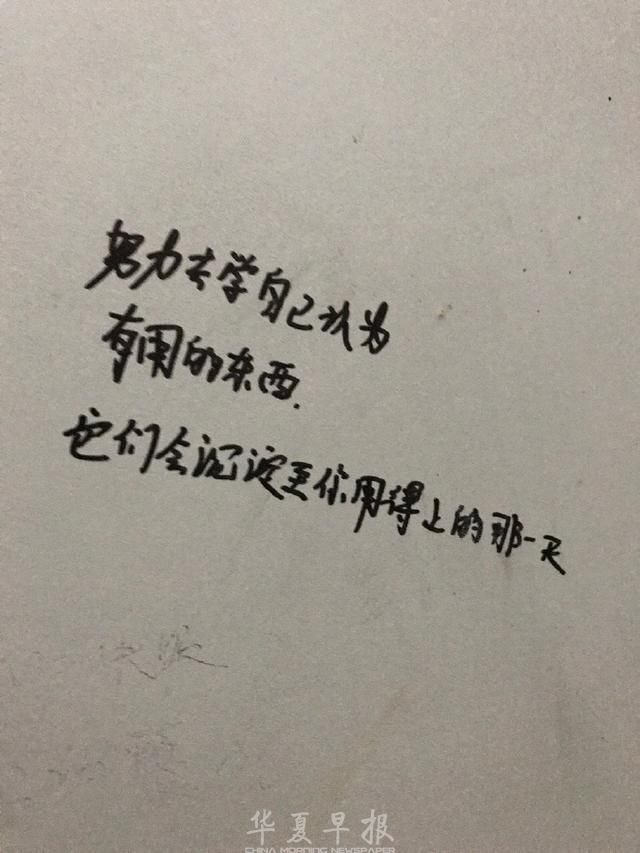 努力去学自己认为
有用的东西.
它们会沉淀至你用得上的那一天
华夏早报
CHINA MORNING NEWSPAPER